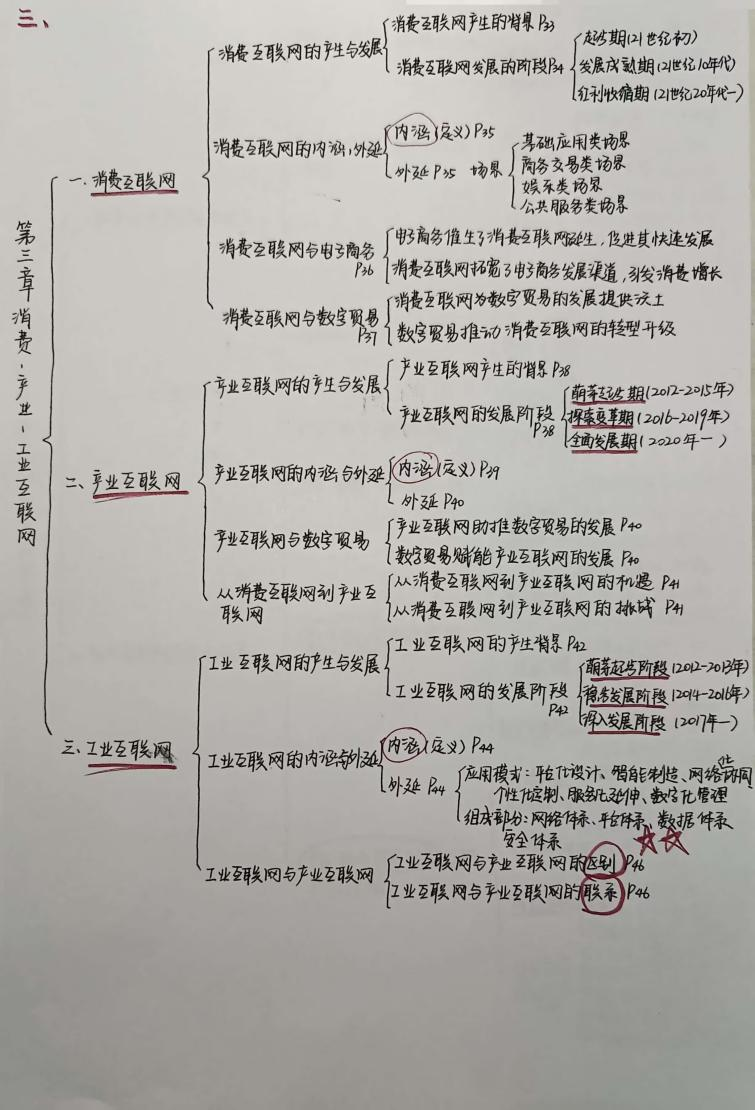 三、
第三章 消费-产业-工业互联网
一.消费互联网
消费互联网的产生与发展
消费互联网产生的背景 P33
消费互联网发展的阶段P34
起步期(21世纪初)
发展成熟期(21世纪10年代)
红利收缩期(21世纪20年代—)
消费互联网的内涵,外延
内涵(定义)P35
外延 P35 场景
基础应用类场景
商务交易类场景
娱乐类场景
公共服务类场景
消费互联网与电子商务
P36
电子商务催生了消费互联网诞生,促进其快速发展
消费互联网拓宽了电子商务发展渠道,引发消费增长
消费互联网与数字贸易
P37
消费互联网为数字贸易的发展提供沃土
数字贸易推动消费互联网的转型升级
二、产业互联网
产业互联网的产生与发展
产业互联网产生的背景P38
产业互联网的发展阶段
P38
萌芽起步期(2012-2015年)
探索变革期(2016-2019年)
全面发展期(2020年—)
产业互联网的内涵与外延
内涵(定义)P39
外延 P40
产业互联网与数字贸易
产业互联网助推数字贸易的发展 P40
数字贸易赋能产业互联网的发展 P40
从消费互联网到产业互
联网
从消费互联网到产业互联网的机遇 P41
从消费互联网到产业互联网的挑战 P41
三.工业互联网
工业互联网的产生与发展
工业互联网的产生背景 P42
工业互联网的发展阶段
P42
萌芽起步阶段(2012-2013年)
稳步发展阶段(2014-2016年)
深入发展阶段(2017年—)
工业互联网的内涵与外延
内涵(定义)P44
外延 P44
应用模式:平台化设计、智能制造、网络化协同
个性化定制、服务化延伸、数字化管理
组成部分:网络体系、平台体系、数据体系
安全体系
工业互联网与产业互联网
工业互联网与产业互联网的区别 P46
工业互联网与产业互联网的联系 P46